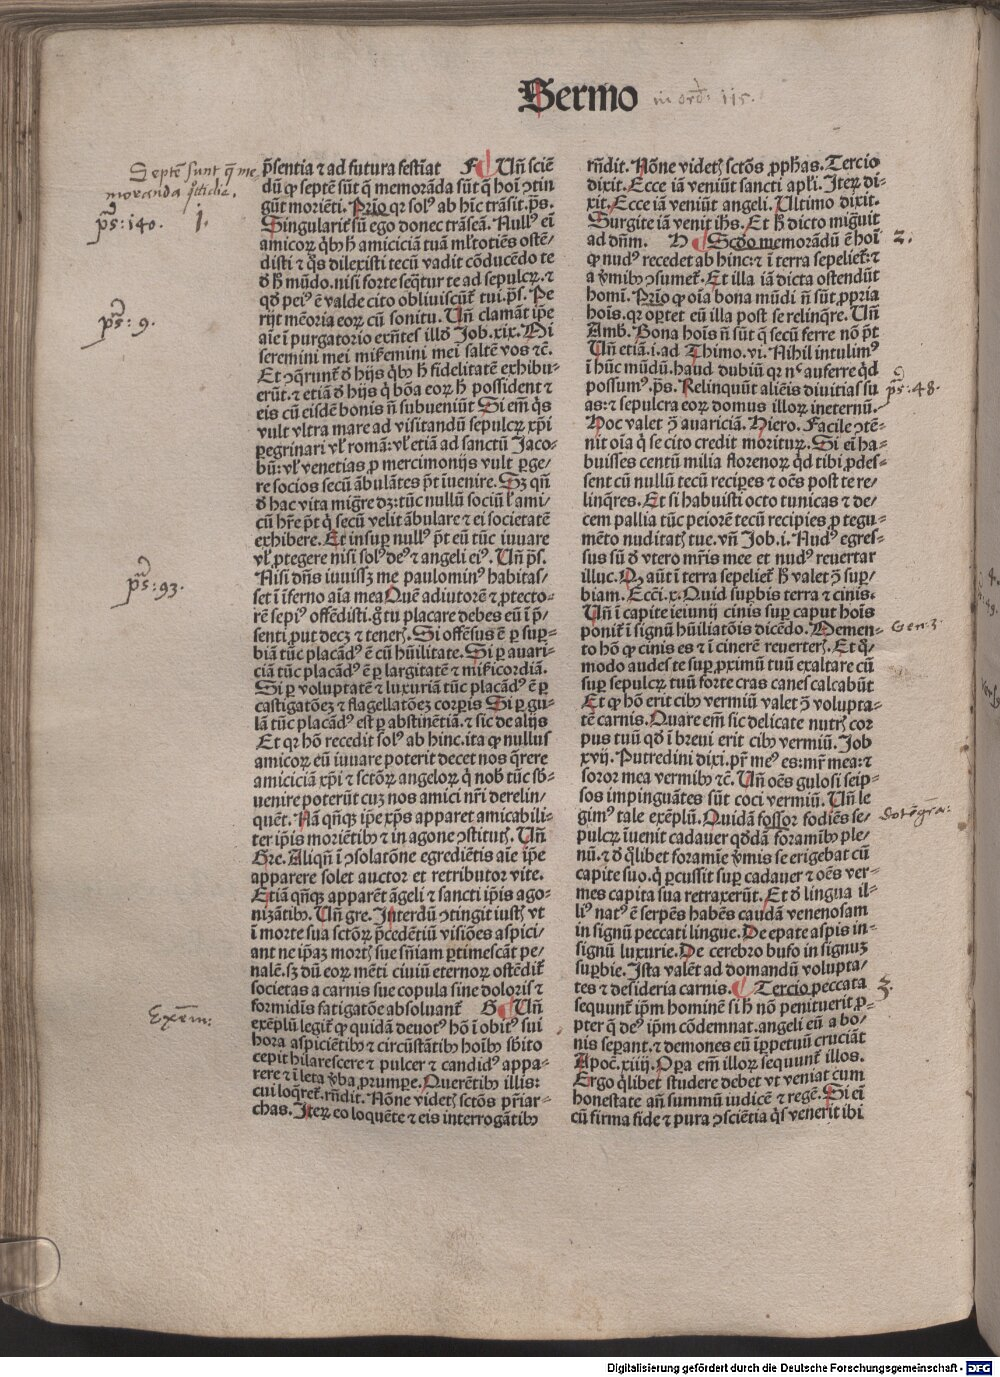 Sermo
in ord: 115.
Septē sunt q̄ me
moranda q̄ttidie.
ps: 140. 1.
ps: 9.
ps: 93.
Exēm:
p̄sentia ⁊ ad futura festīat F ¶ Uñ sciē
dū ꝙ septē sūt q̄ memorāda sūt q̄ hoī ↄtin
gūt moriēti. Prīo qꝛ solꝰ ab hīc trāsit. p̄s.
Singularitꝭ sū ego donec trāseā. Nullꝰ eī
amicoꝝ qͥbꝰ hͥ amiciciā tuā ml̓totiēs ostē/
disti ⁊ q̊s dilexisti tecū vadit cōducēdo te
ꝺ hͦ mūdo. nisi forte seq̄tur te ad sepulcꝝ. ⁊
qđ peiꝰ ē valde cito obliuiscūt̉ tui. p̄s. Pe
rijt mēoria eoꝝ cū sonitu. Uñ clamāt ip̄e
aīe ī purgatorio exñtes illđ Job. xix. Mi
seremini mei mis̓emini mei saltē vos ⁊c̄.
Et ↄq̄runt̉ ꝺ hijs q̇bꝰ hͥ fidelitatē exhibu⸗
erūt. ⁊ etiā ꝺ hijs q̇ bōa eoꝝ hͥ possident ⁊
eis cū eisdē bonis ñ subueniūt Si em̄ q̇s
vult vltra mare ad visitandū sepulcꝝ xp̄i
ꝑegrinari vl̓ romā: vl̓ etiā ad sanctū Jaco⸗
bū: vl̓ venetias ꝓ mercimonijs vult ꝑge/
re socios secū ābulātes p̄t īuenire. Sꝫ qñ
ꝺ hac vita migr̄e dꝫ: tūc nullū sociū l̓ ami/
cū hr̄e p̄t q̇ secū velit ābulare ⁊ ei societatē
exhibere. Et insuꝑ nullꝰ p̄t eū tūc iuuare
vl̓ ꝓtegere nisi solꝰ deꝰ ⁊ angeli eiꝰ. Uñ p̄s.
Nisi dn̄s iuuissꝫ me paulominꝰ habitas/
set ī īferno aīa mea Quē adiutorē ⁊ ꝓtecto⸗
rē sepiꝰ offēdisti. g̊ tu placare debes eū ī p̄/
senti. put decꝫ ⁊ teneris. Si offēsus ē ꝑ suꝑ⸗
biā tūc placādꝰ ē cū hūilitate. Si ꝑ auari⸗
ciā tūc placādꝰ ē ꝑ largitatē ⁊ mis̓icordiā.
Si ꝑ voluptatē ⁊ luxuriā tūc placādꝰ ē ꝑ
castigatōeꝫ ⁊ flagellatōeꝫ corꝑis Si ꝑ gu⸗
lā tūc placādꝰ est ꝑ abstinētiā. ⁊ sic de alijs
Et qꝛ hō recedit solꝰ ab hinc. ita ꝙ nullus
amicoꝝ eū iuuare poterit decet nos q̄rere
amiciciā xp̄i ⁊ sctōꝝ angeloꝝ q̇ nobꝭ tūc sb̓⸗
uenire poterūt cuꝫ nos amici nr̄i derelin/
quēt. Nā qñqꝫ ip̄e xp̄s apparet amicabili⸗
ter ip̄is moriētibꝰ ⁊ in agone ↄstitutis. Uñ
Gre. Aliqñ ī ↄsolatōne egrediētis aīe ip̄e
apparere solet auctor et retributor vite.
Etiā qñqꝫ apparēt āgeli ⁊ sancti ip̄is ago⸗
nizātibꝰ. Uñ gre. Interdū ↄtingit iustis vt
ī morte sua sctōꝝ p̄cedētiū visiōes aspici/
ant ne ip̄aꝫ mortis sue sn̄iam ꝑtimescāt pe/
nalē. sꝫ dū eoꝝ mēti ciuiū eternoꝝ ostēdit̉
societas a carnis sue copula sine doloris ⁊
formidīs fatigatōe absoluant̉ G ¶ Uñ
exēplū legit̉ ꝙ quidā deuotꝰ hō ī obitꝰ sui
hora aspiciētibꝰ ⁊ circūstātibꝰ hoībꝰ sb̓ito
cepit hilarescere ⁊ pulcer ⁊ candidꝰ appa⸗
rere ⁊ ī leta v̓ba ꝓrumꝑe. Querētibꝰ illis:
cui loq̄ret̉. rn̄dit. Nōne videtis sctōs pr̄iar⸗
chas. Iteꝝ eo loquēte ⁊ eis interrogātibꝰ
rn̄dit. Nōne videtis sctōs ꝓphas. Tercio
dixit. Ecce iā veniūt sancti apl̓i. Iteꝝ di⸗
xit. Ecce iā veniūt angeli. Ultimo dixit.
Surgite iā venit ihs. Et hͦ dicto migͣuit
ad dn̄m. H ¶ Scđo memorādū ē hoī
ꝙ nudꝰ recedet ab hinc: ⁊ ī terra sepeliet̉: ⁊
a v̓mibꝰ ↄsumet̉. Et illa iā dicta ostendūt
homī. Prīo ꝙ oīa bona mūdi ñ sūt ꝓpria
hoīs. qꝛ oꝑtet eū illa post se relinq̄re. Uñ
Amb. Bona hoīs ñ sūt q̄ secū ferre nō p̄t
Uñ etiā. i. ad Thimo. vi. Nihil intulimꝰ
ī hūc mūdū. haud dubiū qꝛ nec auferre qͥd
possumꝰ. p̄s. Relinquūt aliēis diuitias su
as: ⁊ sepulcra eoꝝ domus illoꝝ ineternū.
Hoc valet ↄ̄ auariciā. Hiero. Facile ↄtē⸗
nit oīa q̇ se cito credit morituꝝ. Si ei ha⸗
buisses centū milia florenoꝝ qͥd tibi ꝓdes⸗
sent cū nullū tecū recipes ⁊ oēs post te re/
linq̄res. Et si habuisti octo tunicas ⁊ de/
cem pallia tūc peiorē tecū recipies ꝓ tegu⸗
mēto nuditatis tue. vñ Job. i. Nudꝰ egres⸗
sus sū ꝺ vtero mr̄is mee et nudꝰ reuertar
illuc. Qꝫ aūt ī terra sepeliet̉ hͦ valet ↄ̄ suꝑ/
biam. Ecci. x. Quid suꝑbis terra ⁊ cinis.
Uñ ī capite ieiunij cinis suꝑ caput hoīs
ponit̉ ī signū hūiliatōis dicēdo. Memen⸗
to hō ꝙ cinis es ⁊ ī cinerē reuerteris. Et quō⸗
modo audes te suꝑ ꝓximū tuū exaltare cū
suꝑ sepulcꝝ tuū forte cras canes calcabūt
Et ꝙ hō erit cibꝰ vermiū valet ↄ̄ volupta⸗
tē carnis. Quare em̄ sic delicate nutris cor
pus tuū qđ ī breui erit cibꝰ vermiū. Job
xvij. Putredini dixi. pr̄ meꝰ es: mr̄ mea: ⁊
soror mea vermibꝰ ⁊c̄. Uñ oēs gulosi seip⸗
sos impinguātes sūt coci vermiū. Uñ le
gimꝰ tale exēplū. Quidā fossor fodiēs se/
pulcꝝ īuenit cadauer qđdā foramībꝰ ple/
nū. ⁊ ꝺ q̇libet foramīe v̓mis se erigebat cū
capite suo. q̇ ꝑcussit suꝑ cadauer ⁊ oēs ver⸗
mes capita sua retraxerūt. Et ꝺ lingua il⸗
liꝰ natꝰ ē serpēs habēs caudā venenosam
in signū peccati lingue. De epate aspis in⸗
signū luxurie. De cerebro bufo in signuꝫ
suꝑbie. Ista valēt ad domandū volupta/
tes ⁊ desideria carnis. ¶ Tercio peccata
sequunt̉ ip̄m hominē si hͥ nō penituerit ꝓ⸗
pter q̄ deꝰ ip̄m cōdemnat. angeli eū a bo/
nis seꝑant. ⁊ demones eū īꝑpetuū cruciāt
Apoc̄. xiiij. Oꝑa em̄ illoꝝ sequunt̉ illos.
Ergo q̇libet studere debet vt veniat cum
honestate añ summū iudicē ⁊ regē. Si ei
cū firma fide ⁊ pura ↄsciētia q̇s venerit ibi
2.
ps: 48.
Gen: 3.
3.
Digitalisierung gefördert durch die Deutsche Forschungsgemeinschaft - DFG